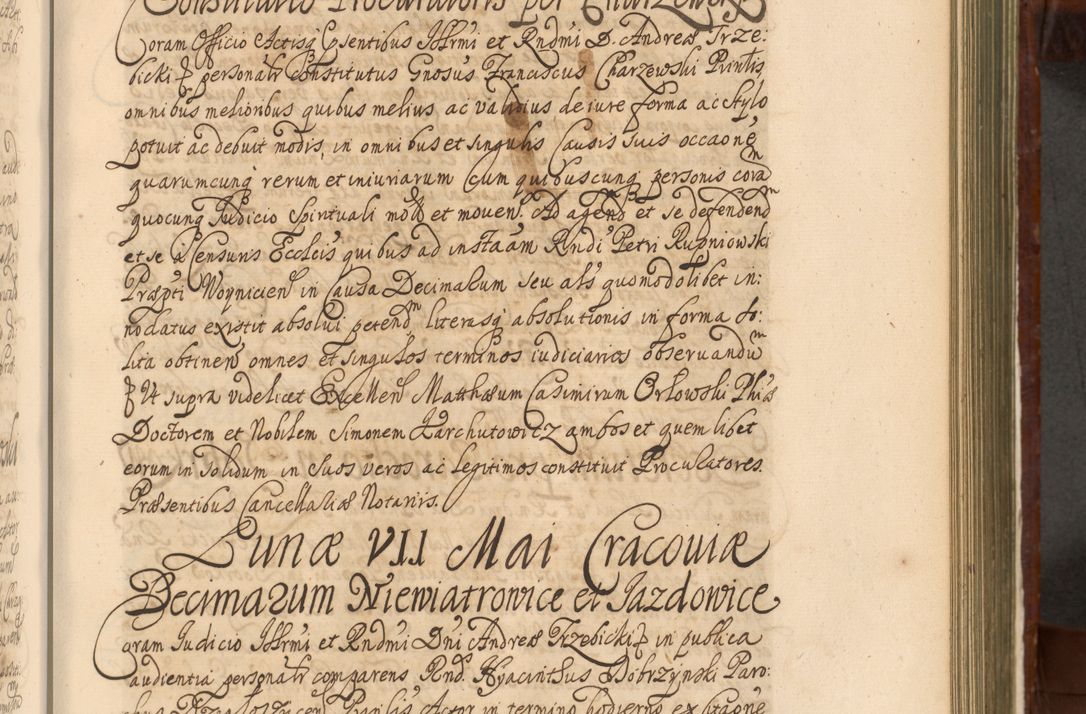 Constitutio Procuratoris per Charzewski
Coram Officio Actisq Psentibus Illrmi et Rndmi D. Andreæ Trze:
bicki personalr Constitutus Gnosus Franciscus Charzewski Prinlis
omnibus melioribus quibus melius ac validius de iure forma ac stylo
potuit ac debuit modis, in omnibus et singulis Causis suis occaone
quarumcunq rerum et iniuriarum Cum quibuscunq personis cora
quocunq Iudicio Spirituali mot et moven. Ad agend et se defendend
et se à Censuris Eccleis quibus ad instaam Rndi Petri Rupniowski
Præpti Woynicien in Causa Decimarum seu als quomodolibet in:
nodatus existit absolui petend literasq absolutionis in forma so:
lita obtinen omnes et singulos terminos iudiciarios observandu
Ut supra videlicet Excellen Matthæum Casimirum Orłowski Phiæ
Doctorem et Nobilem Simonem Karchutowicz ambos et quemlibet
eorum in solidum in suos veros ac legitimos constituit Procuratores.
Præsentibus Cancellariæ Notariis.
Lunæ VII Mai Cracoviæ
Decimarum Niewiatrowice et Jazdowice
Coram Iudicio Illrmi et Rndmi Dni Andreæ Trzebicki in publica
audientia personalr comparens Rnd. Hyacinthus Dobrzynski Paro:
in termino hodierno ex litaone